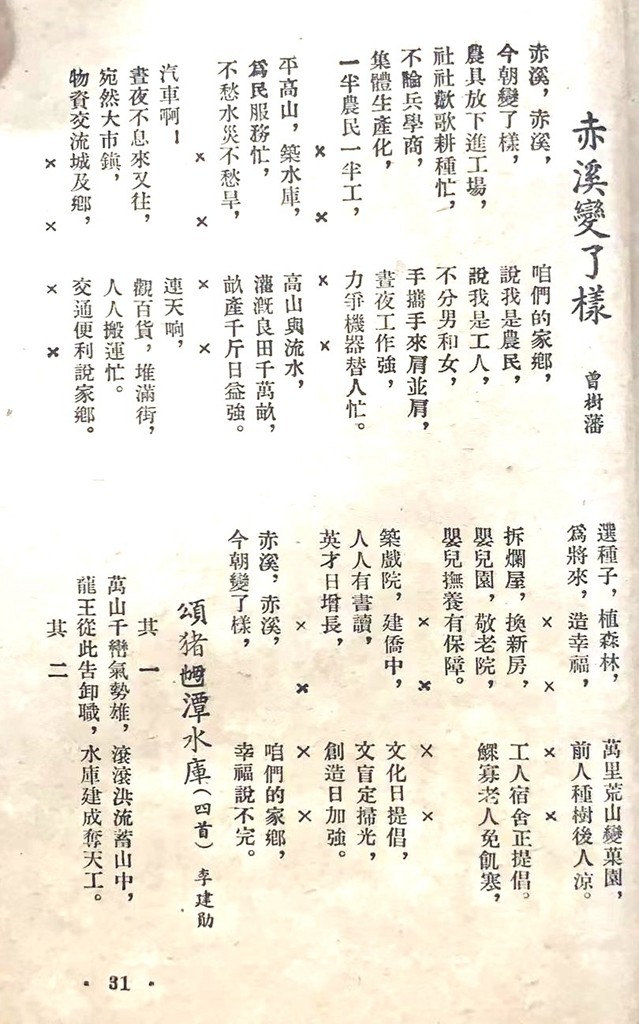 赤溪變了樣 曾樹藩
赤溪，赤溪， 咱們的家鄉，
今朝變了樣， 說我是農民，
農具放下進工場， 說我是工人，
社社歡歌耕種忙， 不分男和女，
不論兵學商， 手攜手來肩並肩，
集體生產化， 晝夜工作強，
一半農民一半工， 力爭機器替人忙。
× × × ×
平高山，築水庫， 高山與流水，
爲民服務忙， 灌漑良田千萬畝，
不愁水災不愁旱， 畝產千斤日益強。
× × × ×
汽車啊！ 連天响，
晝夜不息來又往， 觀百貨，堆滿街，
宛然大市鎮， 人人搬運忙。
物資交流城及鄉， 交通便利說家鄉。
× × × ×
選種子，植森林， 萬里荒山變菓園，
爲將來，造幸福， 前人種樹後人涼。
× × × ×
拆爛屋，換新房， 工人宿舍正提倡。
嬰兒園，敬老院， 鰥寡老人免飢寒，
嬰兒撫養有保障。
× × × ×
築戲院，建僑中， 文化日提倡，
人人有書讀， 文盲定掃光，
英才日增長， 創造日加強。
× × × ×
赤溪，赤溪， 咱們的家鄉，
今朝變了樣， 幸福說不完。
頌猪乸潭水庫（四首） 李建勛
其一
萬山千巒氣勢雄，滾滾洪流蓄山中，
龍王從此吿卸職，水庫建成奪天工。
其二
· 31 ·